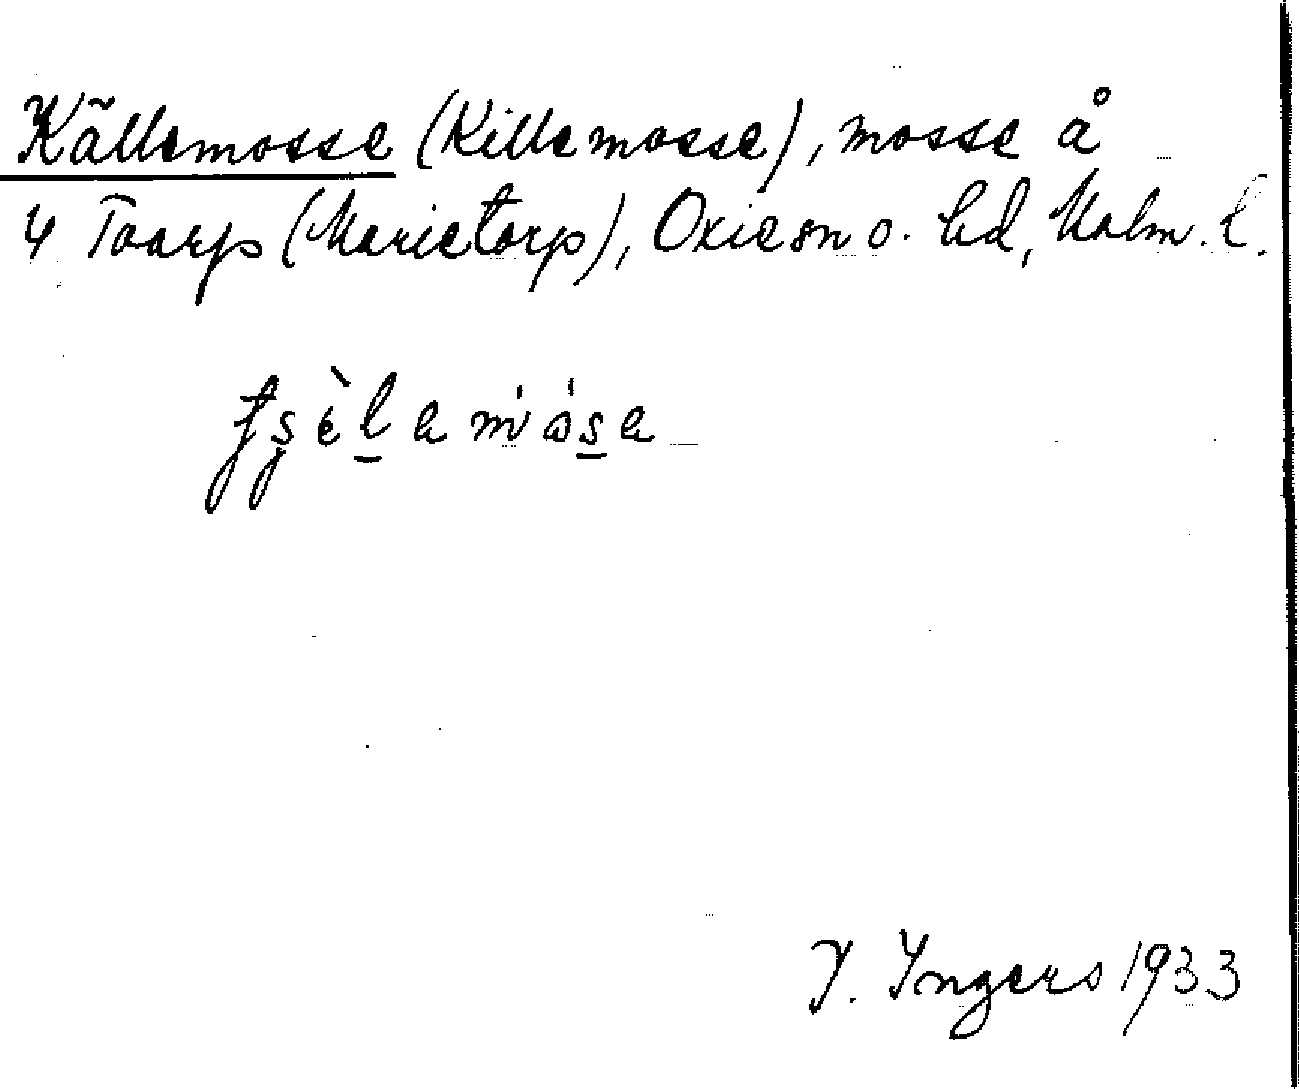 Källemosse (Killemosse), mosse å
4 Toarp (Marietorp), Oxie sn o. hd, Malm. l.
tşèlamåsa
I. Ingers 1933